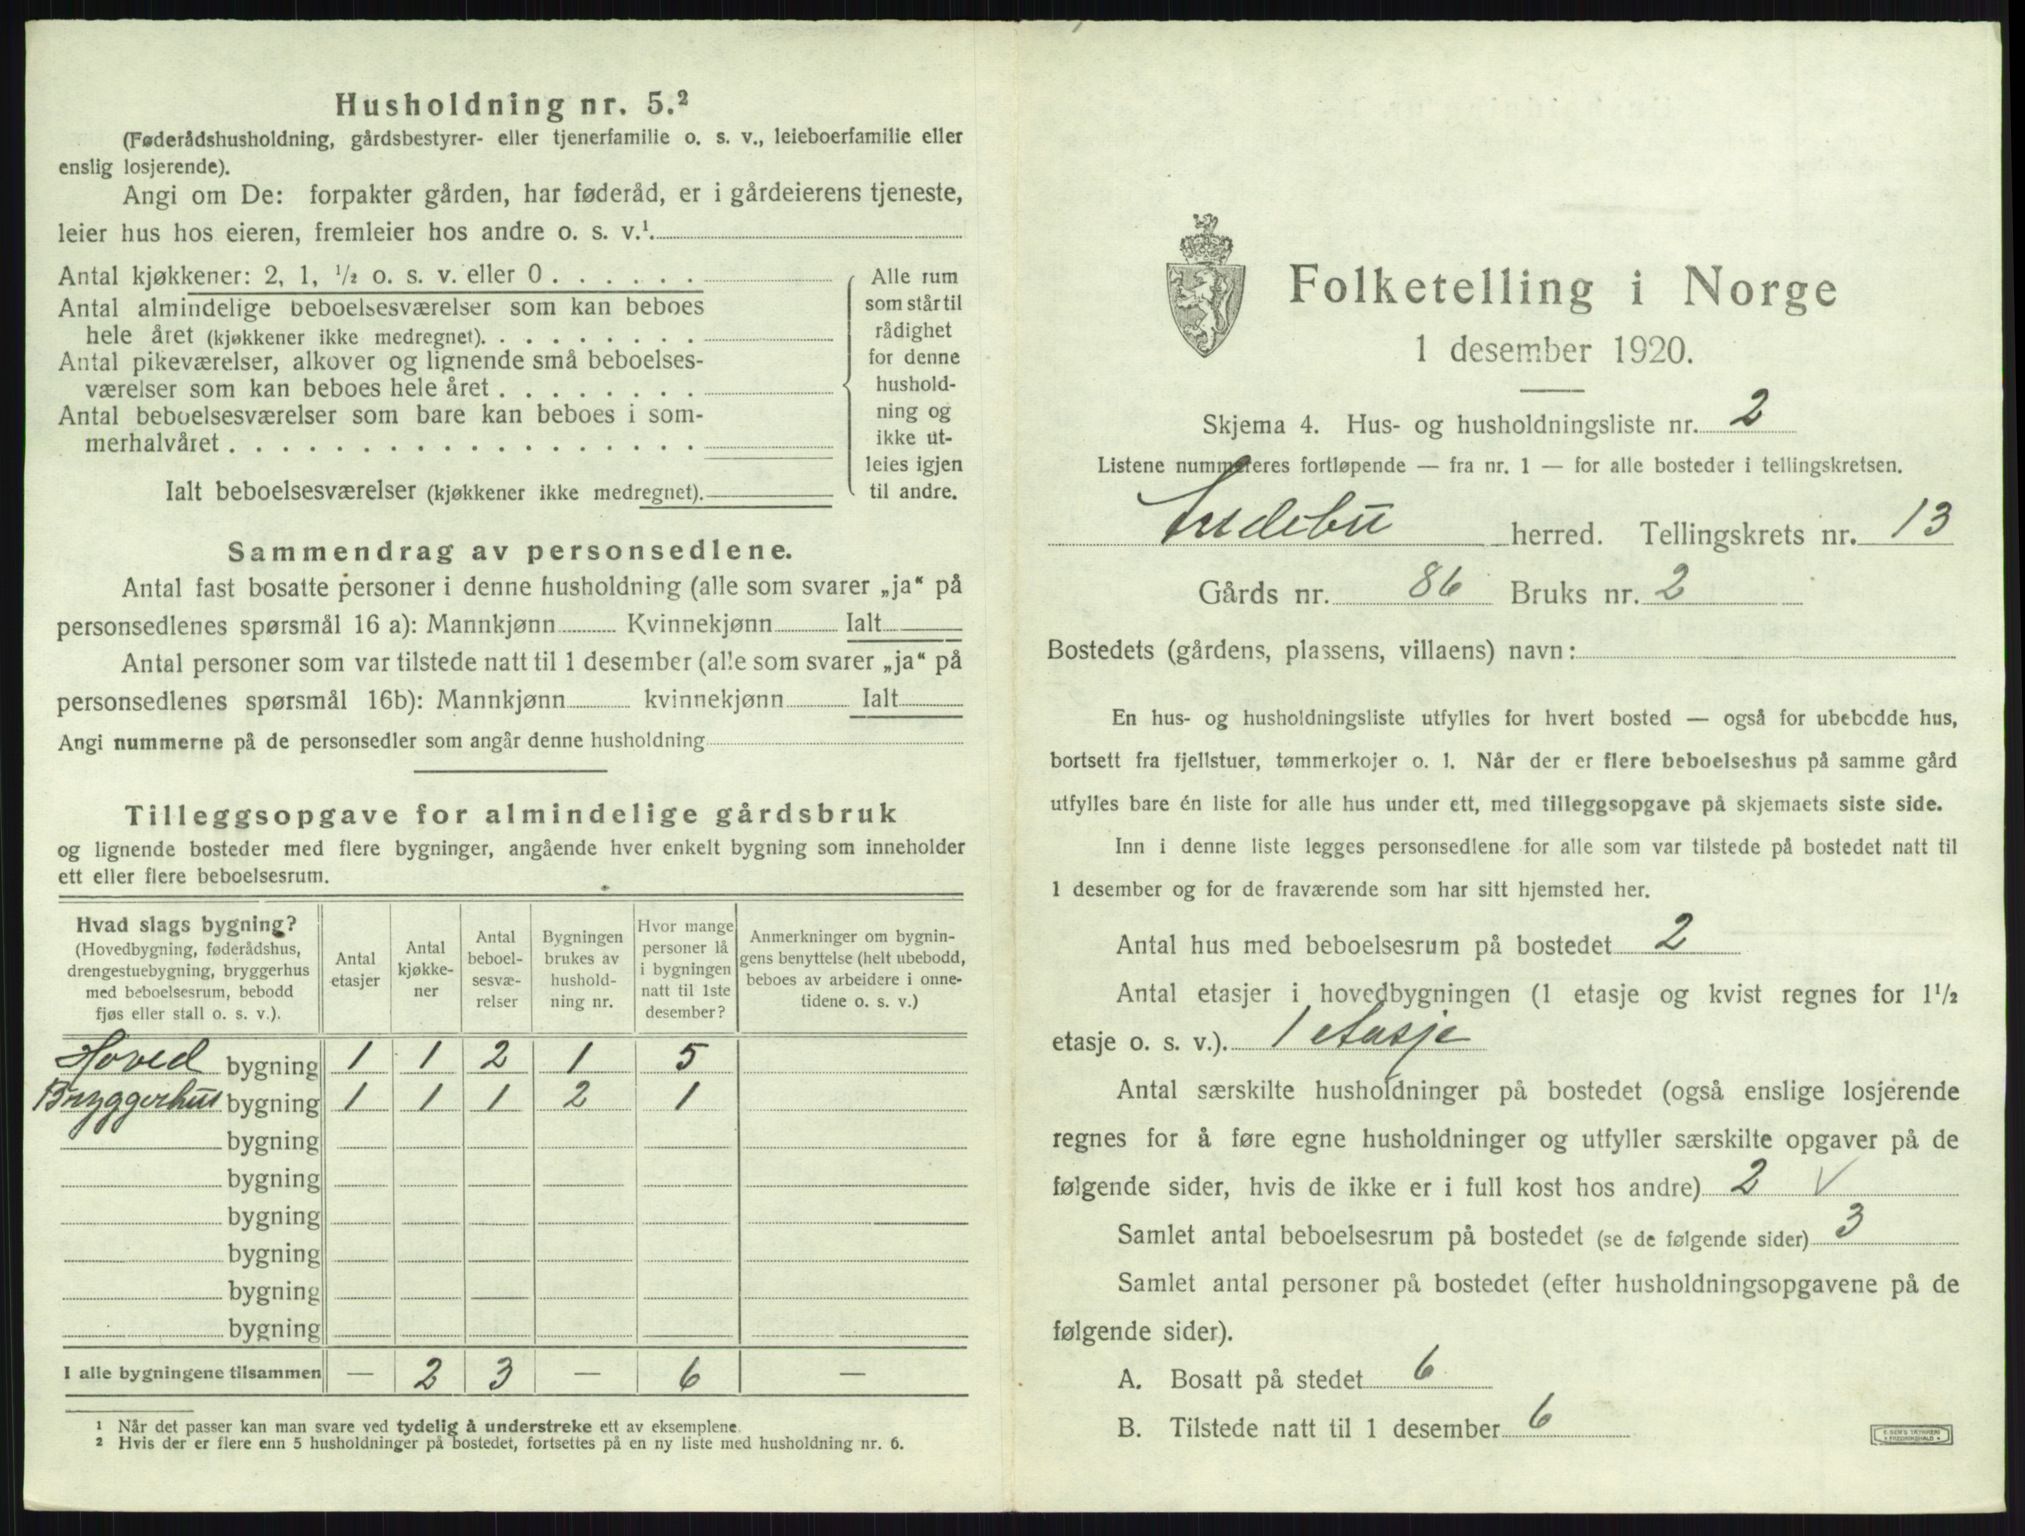 Husholdning nr. 5.²
(Føderådshusholdning, gårdsbestyrer- eller tjenerfamilie o. s. v., leieboerfamilie eller
enslig losjerende).
Angi om De: forpakter gården, har føderåd, er i gårdeierens tjeneste,
leier hus hos eieren, fremleier hos andre o. s. v.¹.
Antal kjøkkener: 2, 1, ½ o. s. v. eller 0 . . . . . .
Antal almindelige beboelsesværelser som kan beboes
hele året (kjøkkener ikke medregnet). . . . . . . . .
Antal pikeværelser, alkover og lignende små beboelses-
værelser som kan beboes hele året . . . . . . . .
Antal beboelsesværelser som bare kan beboes i som-
merhalvåret . . . . . . . . . . . . . . . . . .
Ialt beboelsesværelser (kjøkkener ikke medregnet).
Alle rum
som står til
rådighet
for denne
hushold-
ning og
ikke ut-
leies igjen
til andre.
Sammendrag av personsedlene.
Antal fast bosatte personer i denne husholdning (alle som svarer „ja“ på
personsedlenes spørsmål 16 a): Mannkjønn Kvinnekjønn Ialt
Antal personer som var tilstede natt til 1 desember (alle som svarer „ja“ på
personsedlenes spørsmål 16b): Mannkjønn kvinnekjønn Ialt
Angi nummerne på de personsedler som angår denne husholdning
Tilleggsopgave for almindelige gårdsbruk
og lignende bosteder med flere bygninger, angående hver enkelt bygning som inneholder
ett eller flere beboelsesrum.
Hvad slags bygning?
(Hovedbygning, føderådshus,
drengestuebygning, bryggerhus
med beboelsesrum, bebodd
fjøs eller stall o. s. v.).
Antal
etasjer
Antal
kjøkke-
ner
Antal
beboel-
sesvæ-
relser
Bygningen
brukes av
hushold-
ning nr.
Hvor mange
personer lå
i bygningen
natt til 1ste
desember?
Anmerkninger om bygnin-
gens benyttelse (helt ubebodd,
beboes av arbeidere i onne-
tidene o. s. v.)
Hoved bygning 1 1 2 1 5
Bryggerhus bygning 1 1 1 2 1
bygning
bygning
bygning
bygning
bygning
bygning
I alle bygningene tilsammen — 2 3 — 6 —
¹ Når det passer kan man svare ved tydelig å understreke ett av eksemplene.
² Hvis der er flere enn 5 husholdninger på bostedet, fortsettes på en ny liste med husholdning nr. 6.
Folketelling i Norge
1 desember 1920.
Skjema 4. Hus- og husholdningsliste nr. 2
Listene nummereres fortløpende — fra nr. 1 — for alle bosteder i tellingskretsen.
Andebu herred. Tellingskrets nr. 13
Gårds nr. 86 Bruks nr. 2
Bostedets (gårdens, plassens, villaens) navn:
En hus- og husholdningsliste utfylles for hvert bosted — også for ubebodde hus,
bortsett fra fjellstuer, tømmerkojer o. l. Når der er flere beboelseshus på samme gård
utfylles bare én liste for alle hus under ett, med tilleggsopgave på skjemaets siste side.
Inn i denne liste legges personsedlene for alle som var tilstede på bostedet natt til
1 desember og for de fraværende som har sitt hjemsted her.
Antal hus med beboelsesrum på bostedet 2
Antal etasjer i hovedbygningen (1 etasje og kvist regnes for 1½
etasje o. s. v.). 1 etasje
Antal særskilte husholdninger på bostedet (også enslige losjerende
regnes for å føre egne husholdninger og utfyller særskilte opgaver på de
følgende sider, hvis de ikke er i full kost hos andre) 2 ✓
Samlet antal beboelsesrum på bostedet (se de følgende sider) 3
Samlet antal personer på bostedet (efter husholdningsopgavene på de
følgende sider).
A. Bosatt på stedet 6
B. Tilstede natt til 1 desember 6